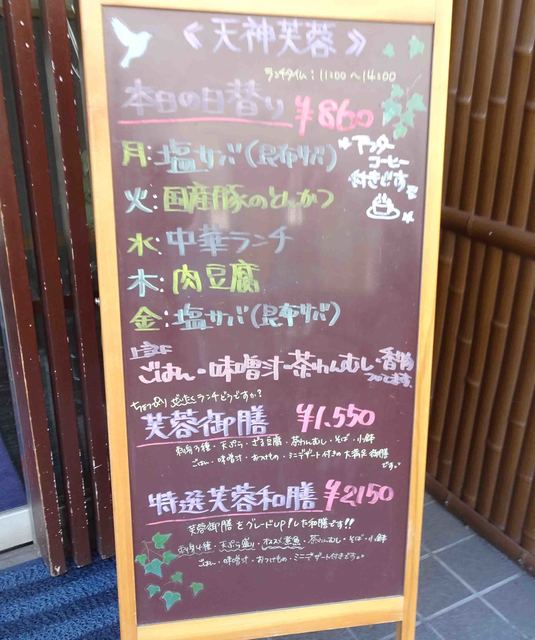 《天神芙蓉》
ランチタイム：11:00～14:00
本日の日替り ¥860
アフターコーヒー付きです
月：塩サバ(昆布サバ)
火：国産豚のとんかつ
水：中華ランチ
木：肉豆腐
金：塩サバ(昆布サバ)
ごはん・味噌汁・茶わんむし・香物
つきます。
ランチどうですか？
芙蓉御膳 ¥1.550
天ぷら・ざる豆腐・茶わんむし・そば・小鉢
ごはん・味噌汁・おつけもの・ミニデザート付きの大満足御膳
です。
特選芙蓉和膳 ¥2,150
芙蓉御膳をグレードUP!した和膳です!!
お造り4種・天ぷら盛り・茶わんむし・そば・小鉢
ごはん・味噌汁・おつけもの・ミニデザート付きです。